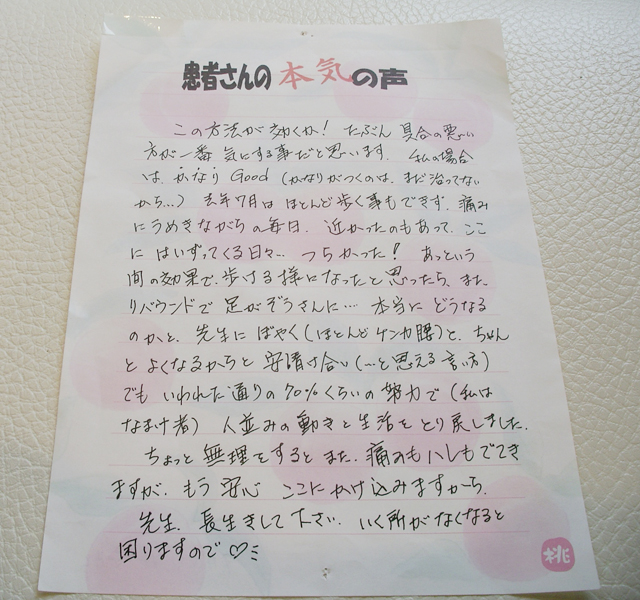 患者さんの本気の声
この方法が効くか! たぶん 具合の悪い
方が一番 気にする事だと思います. 私の場合
は、かなり Good (かなりがつくのは、まだ治ってない
から…) 去年7月は ほとんど歩く事もできず. 痛み
にうめきながらの毎日. 近かったのもあって、ここ
に はいずってくる日々… つらかった! あっという
間の効果で、歩ける様になったと思ったら、また、
リバウンドで 足がぞうさんに… 本当に どうなる
のかと、先生に ぼやく(ほとんどケンカ腰)と、ちゃん
と よくなるからと 安請け合い(…と思える言い方)
でも いわれた通りの 70%くらいの 努力で(私は
なまけ者) 人並みの動きと生活をとり戻しました.
ちょっと 無理をすると また、痛みもハレもでてき
ますが、もう 安心 ここにかけ込みますから.
先生、長生きして下さい. いく所がなくなると
困りますので♡
桃